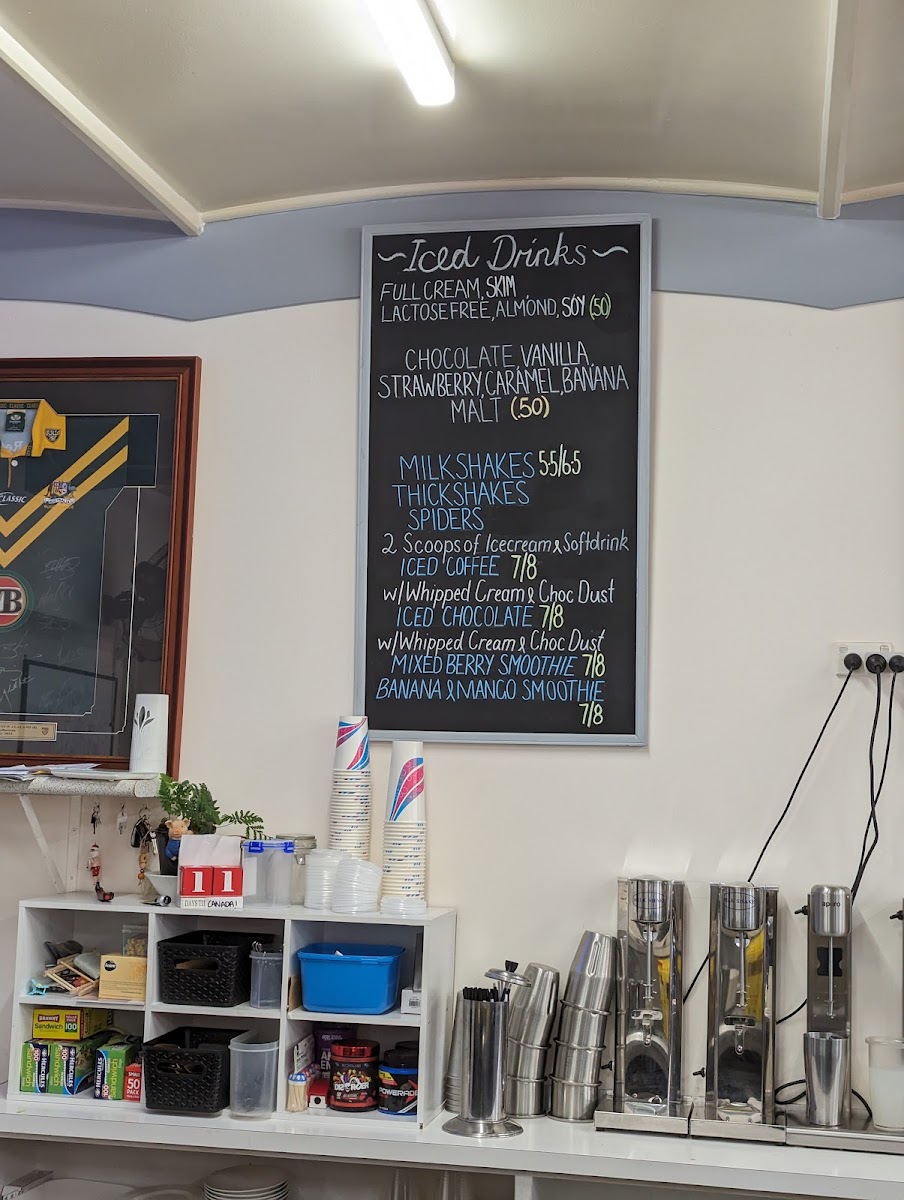 ~Iced Drinks~
FULL CREAM, SKIM
LACTOSE FREE, ALMOND, SOY (50)
CHOCOLATE, VANILLA,
STRAWBERRY, CARAMEL, BANANA
MALT (.50)
MILKSHAKES 5.5/6.5
THICKSHAKES
SPIDERS
2 Scoops of Icecream & Softdrink
ICED COFFEE 7/8
w/Whipped Cream & Choc Dust
ICED CHOCOLATE 7/8
w/Whipped Cream & Choc Dust
MIXED BERRY SMOOTHIE 7/8
BANANA & MANGO SMOOTHIE
7/8
CLASSIC
11
DAYS TIL CANADA!
Sandwich 100
100
sandwich
100
50
PACK
POWERADE
apuro